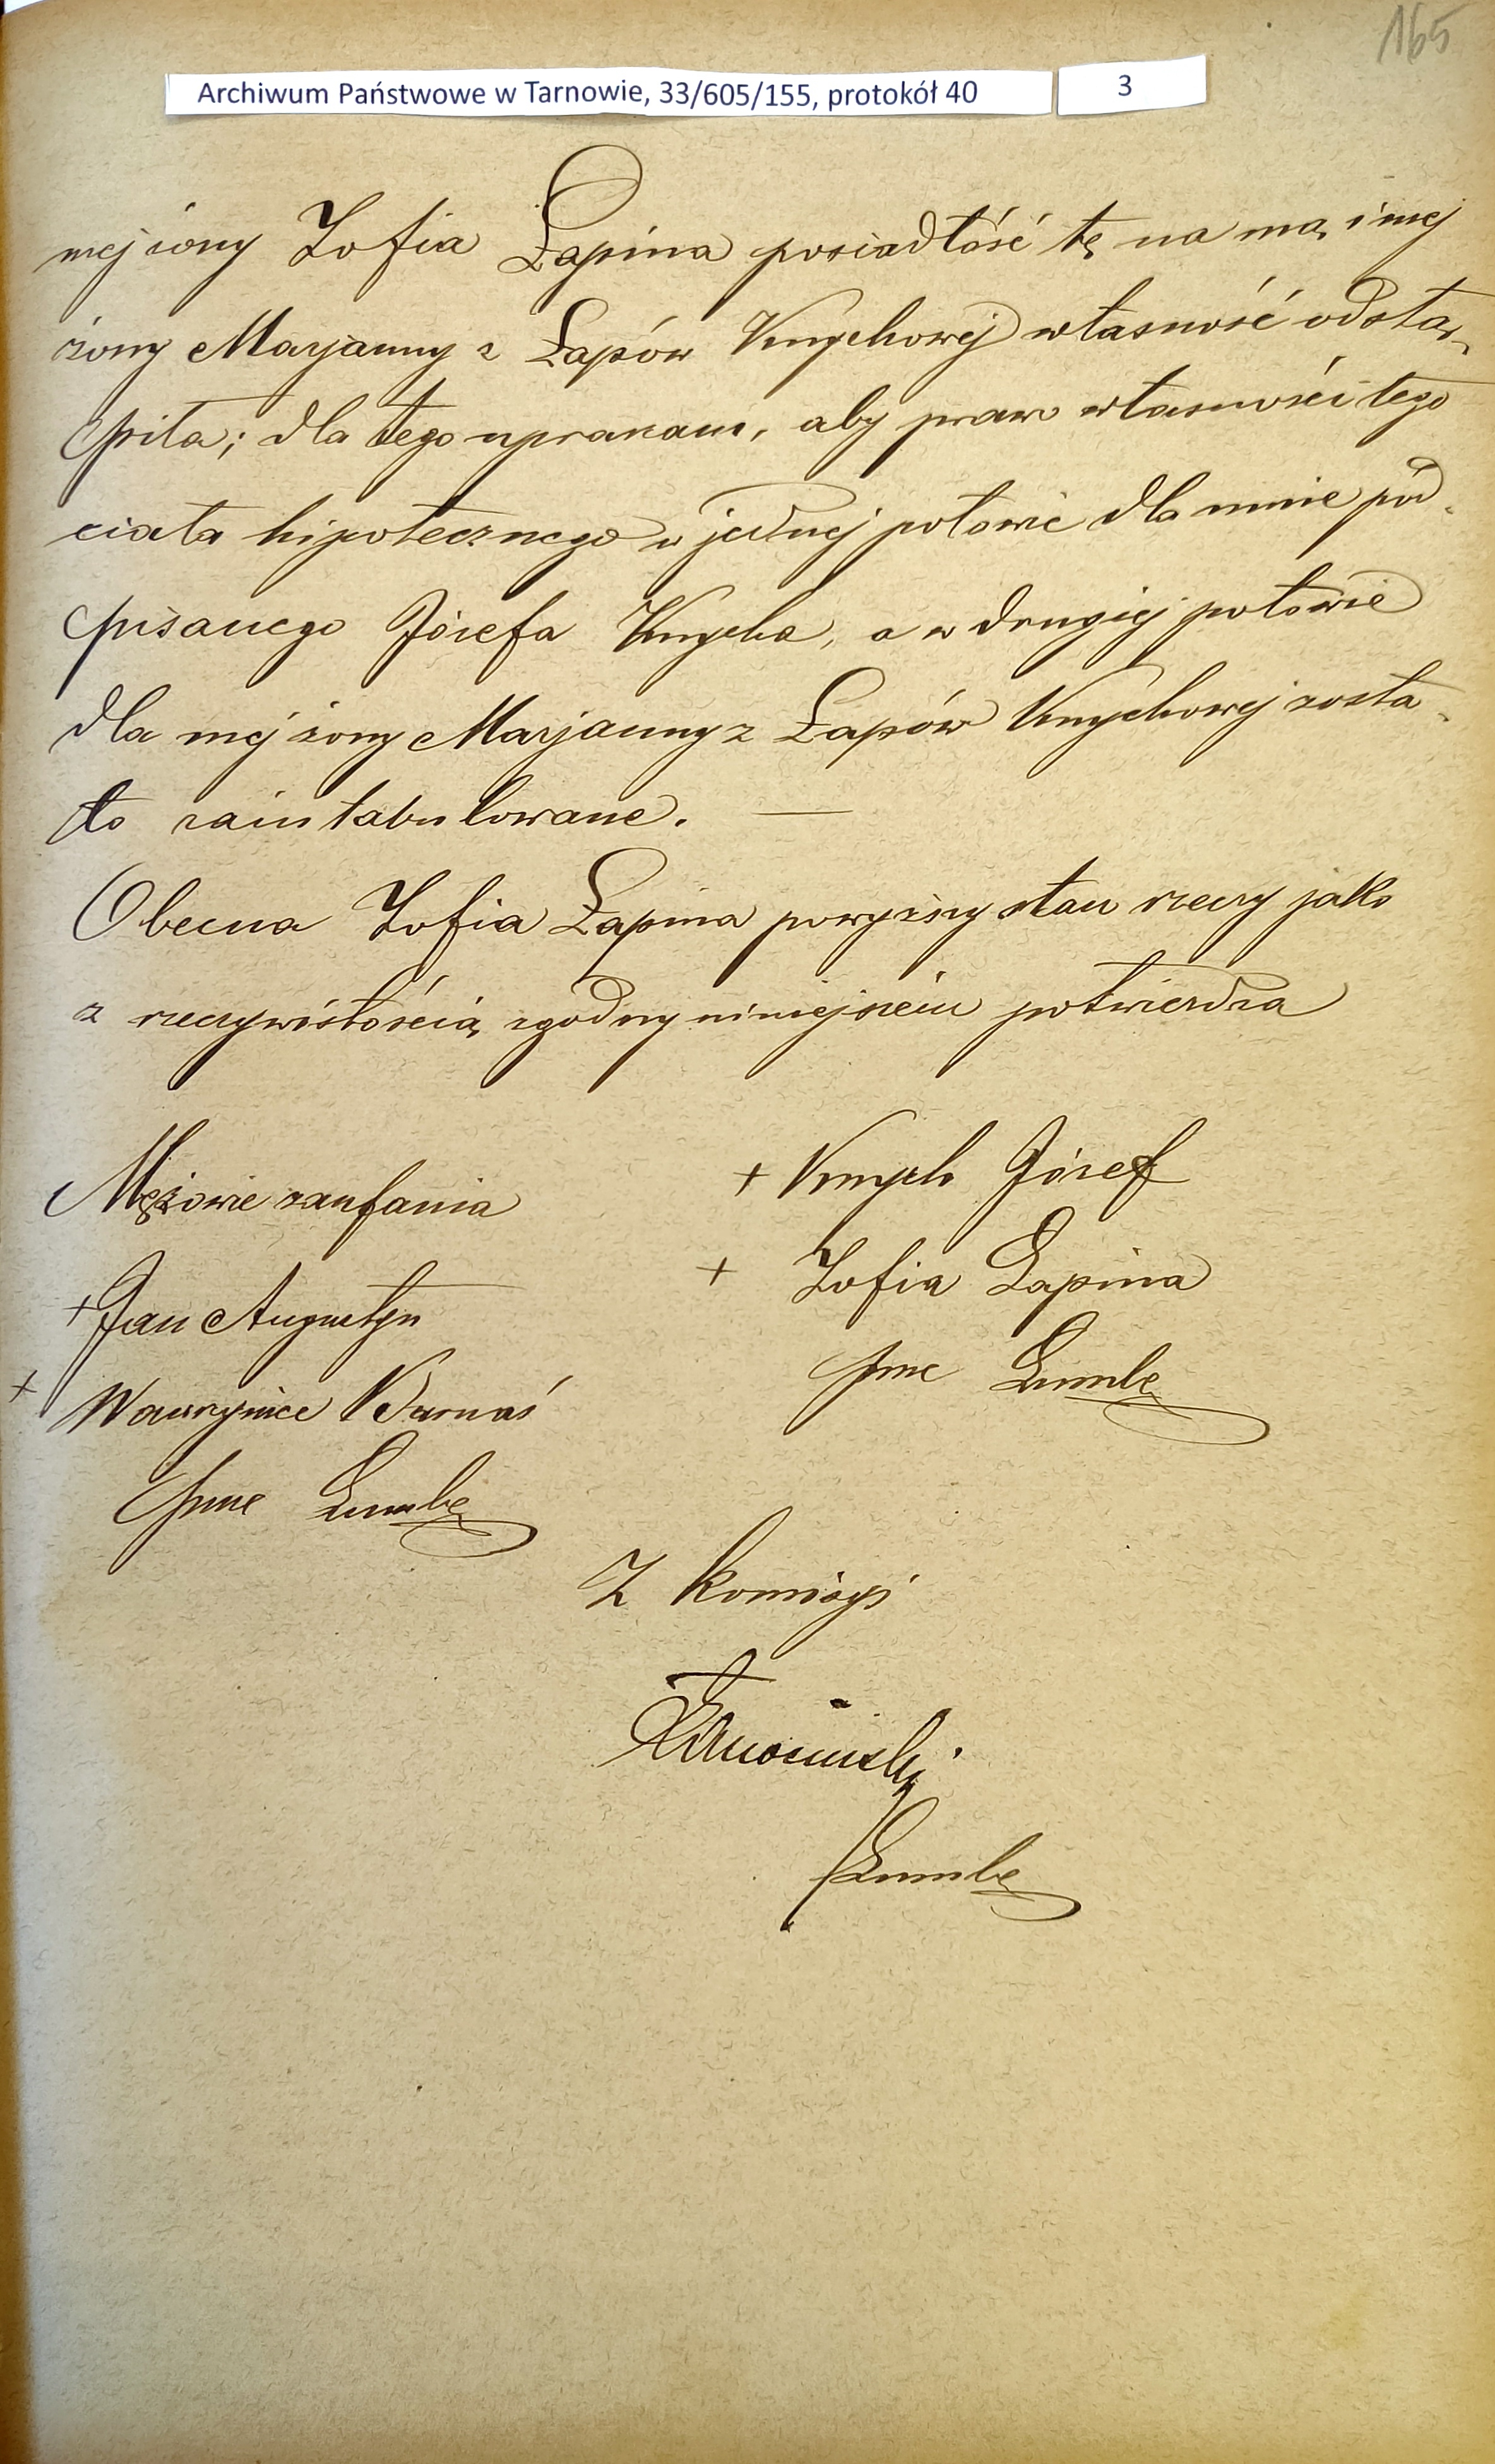 165
Archiwum Państwowe w Tarnowie, 33/605/155, protokół 40
3
mej żony Zofia Łapina posiadłość tę na mą i mej
żony Maryanny z Łapów Knychowej własność odstą-
piła; dla tego upraszam, aby prawo własności tego
ciała hipotecznego w jednej połowie dla mnie pod-
pisanego Józefa Knycha, a w drugiej połowie
dla mej żony Maryanny z Łapów Knychowej zosta-
ło zaintabulowane. —
Obecna Zofia Łapina powyższy stan rzeczy jako
z rzeczywistością zgodny niniejszem potwierdza
Mężowie zaufania
+ Jan Augustyn
+ Wawrzyniec Burnaś
+ Knych Józef
+ Zofia Łapina
Z komisyi